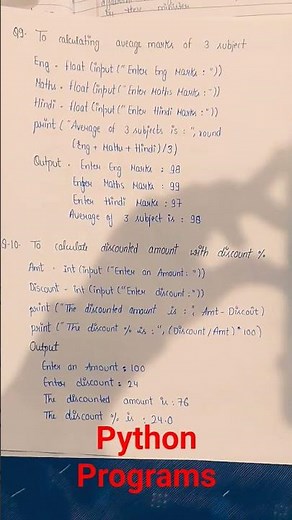 by their
Q9- To calculating average marks of 3 subject
Eng - float (input ("Enter Eng Marks : "))
Maths - float (input ("Enter Maths Marks : "))
Hindi - float (input ("Enter Hindi Marks : "))
print ("Average of 3 subjects is : ", round
(Eng + Maths + Hindi) / 3)
Output - Enter Eng Marks : 98
Enter Maths Marks : 99
Enter Hindi Marks : 97
Average of 3 subject is : 98
Q-10- To calculate discounted amount with discount %.
Amt - int (input ("Enter an Amount : "))
Discount - int (input ("Enter discount : "))
print ("The discounted amount is : ", Amt - Discout)
print ("The discount % is : ", (Discount / Amt) * 100)
Output
Enter an Amount : 100
Enter discount : 24
The discounted amount is : 76
The discount % is : 24.0
Python
Programs